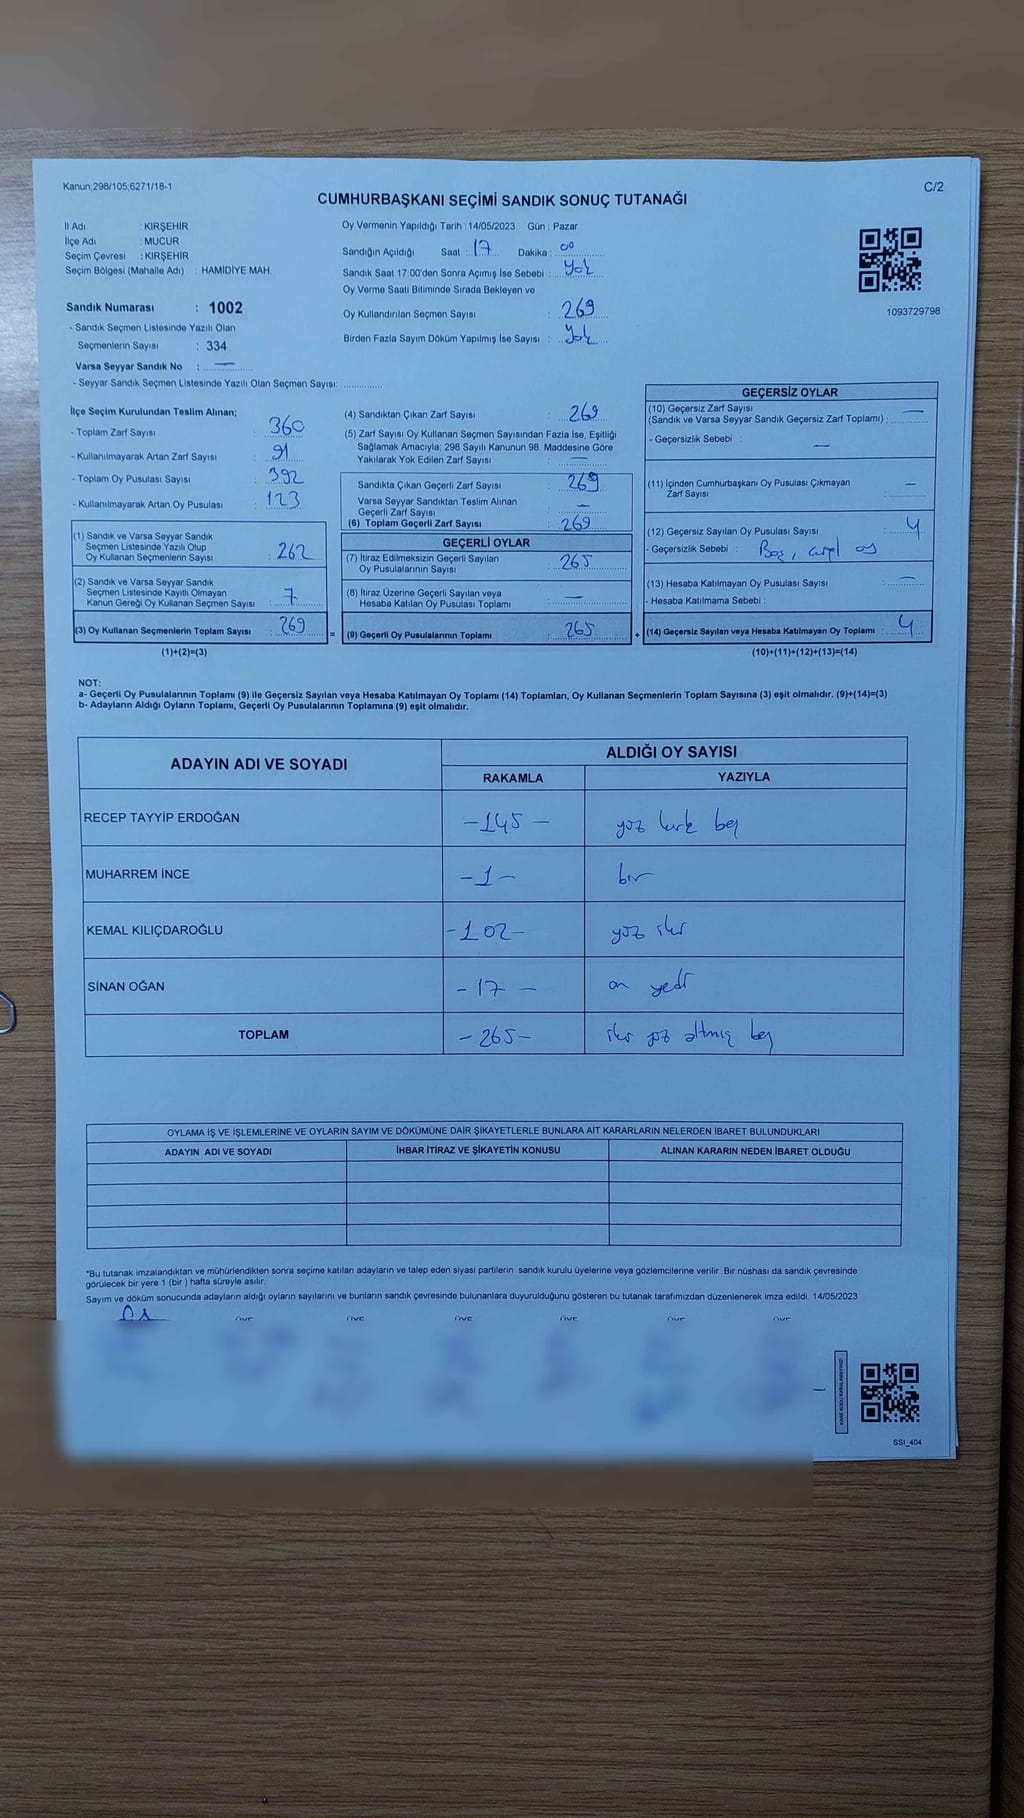 Kanun;298/105;6271/18-1
C/2
CUMHURBAŞKANI SEÇİMİ SANDIK SONUÇ TUTANAĞI
İl Adı : KIRŞEHİR
İlçe Adı : MUCUR
Seçim Çevresi : KIRŞEHİR
Seçim Bölgesi (Mahalle Adı) : HAMİDİYE MAH.
Sandık Numarası : 1002
- Sandık Seçmen Listesinde Yazılı Olan
Seçmenlerin Sayısı : 334
Varsa Seyyar Sandık No : —
- Seyyar Sandık Seçmen Listesinde Yazılı Olan Seçmen Sayısı:
Oy Vermenin Yapıldığı Tarih : 14/05/2023 Gün : Pazar
Sandığın Açıldığı Saat : 17 Dakika : 00
Sandık Saat 17:00'den Sonra Açımış İse Sebebi : Yok
Oy Verme Saati Bitiminde Sırada Bekleyen ve
Oy Kullandırılan Seçmen Sayısı : 269
Birden Fazla Sayım Döküm Yapılmış İse Sayısı : Yok
1093729798
İlçe Seçim Kurulundan Teslim Alınan;
- Toplam Zarf Sayısı : 360
- Kullanılmayarak Artan Zarf Sayısı : 91
- Toplam Oy Pusulası Sayısı : 392
- Kullanılmayarak Artan Oy Pusulası : 123
(1) Sandık ve Varsa Seyyar Sandık
Seçmen Listesinde Yazılı Olup
Oy Kullanan Seçmenlerin Sayısı : 262
(2) Sandık ve Varsa Seyyar Sandık
Seçmen Listesinde Kayıtlı Olmayan
Kanun Gereği Oy Kullanan Seçmen Sayısı : 7
(3) Oy Kullanan Seçmenlerin Toplam Sayısı : 269
(1)+(2)=(3)
(4) Sandıktan Çıkan Zarf Sayısı : 269
(5) Zarf Sayısı Oy Kullanan Seçmen Sayısından Fazla İse, Eşitliği
Sağlamak Amacıyla; 298 Sayılı Kanunun 98. Maddesine Göre
Yakılarak Yok Edilen Zarf Sayısı : —
Sandıkta Çıkan Geçerli Zarf Sayısı : 269
Varsa Seyyar Sandıktan Teslim Alınan
Geçerli Zarf Sayısı : —
(6) Toplam Geçerli Zarf Sayısı : 269
GEÇERLİ OYLAR
(7) İtiraz Edilmeksizin Geçerli Sayılan
Oy Pusulalarının Sayısı : 265
(8) İtiraz Üzerine Geçerli Sayılan veya
Hesaba Katılan Oy Pusulası Toplamı : —
= (9) Geçerli Oy Pusulalarının Toplamı : 265
GEÇERSİZ OYLAR
(10) Geçersiz Zarf Sayısı
(Sandık ve Varsa Seyyar Sandık Geçersiz Zarf Toplamı) : —
- Geçersizlik Sebebi : —
(11) İçinden Cumhurbaşkanı Oy Pusulası Çıkmayan
Zarf Sayısı : —
(12) Geçersiz Sayılan Oy Pusulası Sayısı : 4
- Geçersizlik Sebebi : Boş, oy
(13) Hesaba Katılmayan Oy Pusulası Sayısı : —
- Hesaba Katılmama Sebebi :
+ (14) Geçersiz Sayılan veya Hesaba Katılmayan Oy Toplamı : 4
(10)+(11)+(12)+(13)=(14)
NOT:
a- Geçerli Oy Pusulalarının Toplamı (9) ile Geçersiz Sayılan veya Hesaba Katılmayan Oy Toplamı (14) Toplamları, Oy Kullanan Seçmenlerin Toplam Sayısına (3) eşit olmalıdır. (9)+(14)=(3)
b- Adayların Aldığı Oyların Toplamı, Geçerli Oy Pusulalarının Toplamına (9) eşit olmalıdır.
ADAYIN ADI VE SOYADI ALDIĞI OY SAYISI
RAKAMLA YAZIYLA
RECEP TAYYİP ERDOĞAN -145- yüz kırk beş
MUHARREM İNCE -1- bir
KEMAL KILIÇDAROĞLU -102- yüz iki
SİNAN OĞAN -17- on yedi
TOPLAM -265- iki yüz altmış beş
OYLAMA İŞ VE İŞLEMLERİNE VE OYLARIN SAYIM VE DÖKÜMÜNE DAİR ŞİKAYETLERLE BUNLARA AİT KARARLARIN NELERDEN İBARET BULUNDUKLARI
ADAYIN ADI VE SOYADI İHBAR İTİRAZ VE ŞİKAYETİN KONUSU ALINAN KARARIN NEDEN İBARET OLDUĞU
*Bu tutanak imzalandıktan ve mühürlendikten sonra seçime katılan adayların ve talep eden siyasi partilerin sandık kurulu üyelerine veya gözlemcilerine verilir. Bir nüshası da sandık çevresinde
görülecek bir yere 1 (bir ) hafta süreyle asılır.
Sayım ve döküm sonucunda adayların aldığı oyların sayılarını ve bunların sandık çevresinde bulunanlara duyurulduğunu gösteren bu tutanak tarafımızdan düzenlenerek imza edildi. 14/05/2023
ÜYE ÜYE ÜYE ÜYE ÜYE ÜYE
SSI_404